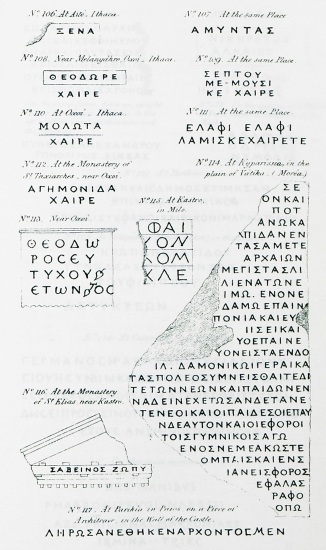 Nº 106. At Aito, Ithaca.
ΞΕΝΑ
Nº 107. At the same Place
ΑΜΥΝΤΑΣ
Nº 108. Near Melanydhro, Oxoi, Ithaca.
ΘΕΟΔΩΡΕ
ΧΑΙΡΕ
Nº 109. At the same Place.
ΣΕΠΤΟΥ
ΜΕ-ΜΟΥΣΙ
ΚΕ ΧΑΙΡΕ
Nº 110. At Oxoi, Ithaca.
ΜΟΛΩΤΑ
ΧΑΙΡΕ
Nº 111. At the same Place
ΕΛΑΦΙ ΕΛΑΦΙ
ΛΑΜΙΣΚΕΧΑΙΡΕΤΕ
Nº 112. At the Monastery of
St Taxiarches, near Oxoi.
ΑΓΗΜΟΝΙΔΑ
ΧΑΙΡΕ
Nº 113. Near Oxoi.
ΘΕΟΔΩ
ΡΟΣΕΥ
ΤΥΧΟΥ
ΕΤΩΝ
Nº 115. At Kastro,
in Milo.
ΦΑΙ
ΙΟΝ
ΛΟΜ
ΚΛΕ
Nº 114. At Kyparissia, in the
plain of Vatika. (Moria).
ΣΕ
ΟΝΚΑΙ
ΠΟΤ
ΑΝΩΚΑ
ΛΠΙΔΑΝΕΝ
ΤΑΣΑΜΕΤΕ
ΑΡΧΑΙΩΝ
ΜΕΓΙΣΤΑΣΛΙ
ΛΙΕΝΑΤΩΝΕ
ΙΜΩ. ΕΝΟΝΕ
ΔΑΜΩΕΠΑΙΝ
ΠΟΝΙΑΚΑΙΕΥ
ΙΙΣΕΙΚΑΙ
ΥΘΕΠΑΙΝΕ
ΥΟΝΕΙΣΤΑΕΝΔΟ
ΙΛ. ΔΑΜΟΝΙΚΩΙΓΕΡΑΙΚΑ
ΤΑΣΠΟΛΕΟΣΥΜΝΕΙΣΘΑΙΤΕΔΙ
ΤΕΤΩΝΝΕΩΝΚΑΙΠΑΙΔΩΝΕΝ
ΝΑΔΕΙΝΕΧΕΤΩΣΑΝΔΕΤΑΝΕ
ΤΕΝΕΟΙΚΑΙΟΙΠΑΙΔΕΣΟΙΕΠΑΥ
ΝΔΕΑΥΤΟΝΚΑΙΟΙΕΦΟΡΟΙ
ΤΟΙΣΓΥΜΝΙΚΟΙΣΑΓΩ
ΕΝΟΣΝΕΜΕΑΚΩΣΤΕ
ΟΜΠΑΙΣΚΑΙΕΝΣ
ΙΑΝΕΙΣΦΟΡΟΣ
ΕΦΑΛΑΣ
ΡΑΦΟ
ΟΠΩ
Nº 116. At the Monastery
of St Elias near Kastro.
ΣΑΒΕΙΝΟΣ ΖΩΠΥ
Nº 117. At Parikia in Paros, on a Piece of
Architrave, in the Wall of the Castle.
ΛΗΡΩΣΑΝΕΘΗΚΕΝΑΡΧΟΝΤΟΣΜΕΝ